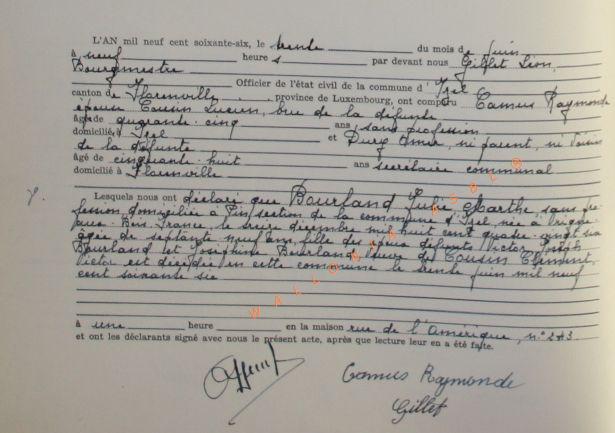 L'AN mil neuf cent soixante-six, le trente du mois de Juin
à neuf heure s par devant nous Gillet Léon,
Bourgmestre Officier de l'état civil de la commune d' Izel
canton de Florenville, province de Luxembourg, ont comparu Camus Raymonde
épouse Cousin Lucien, bru de la défunte
âgée de quarante-cinq ans, sans profession
domiciliée à Izel et Dury Omer, ni parent, ni voisin
de la défunte
âgé de cinquante-huit ans secrétaire communal
domicilié à Florenville
Lesquels nous ont déclaré que Bourland Julie Marthe sans pro
fession domiciliée à Pin, section de la commune d'Izel, née à
aux-Bois, France, le treize décembre mil huit cent quatre-vingt six
âgée de septante-neuf ans, fille des époux défunts Victor Joseph
Bourland et Joséphine Bourland, veuve de Cousin Clément
Victor est décédée en cette commune le trente juin mil neuf
cent soixante six
à une heure en la maison rue de l'Amérique, n°
et ont les déclarants signé avec nous le présent acte, après que lecture leur en a été faite.
Camus Raymonde
Gillet
WALLONIA ASBL